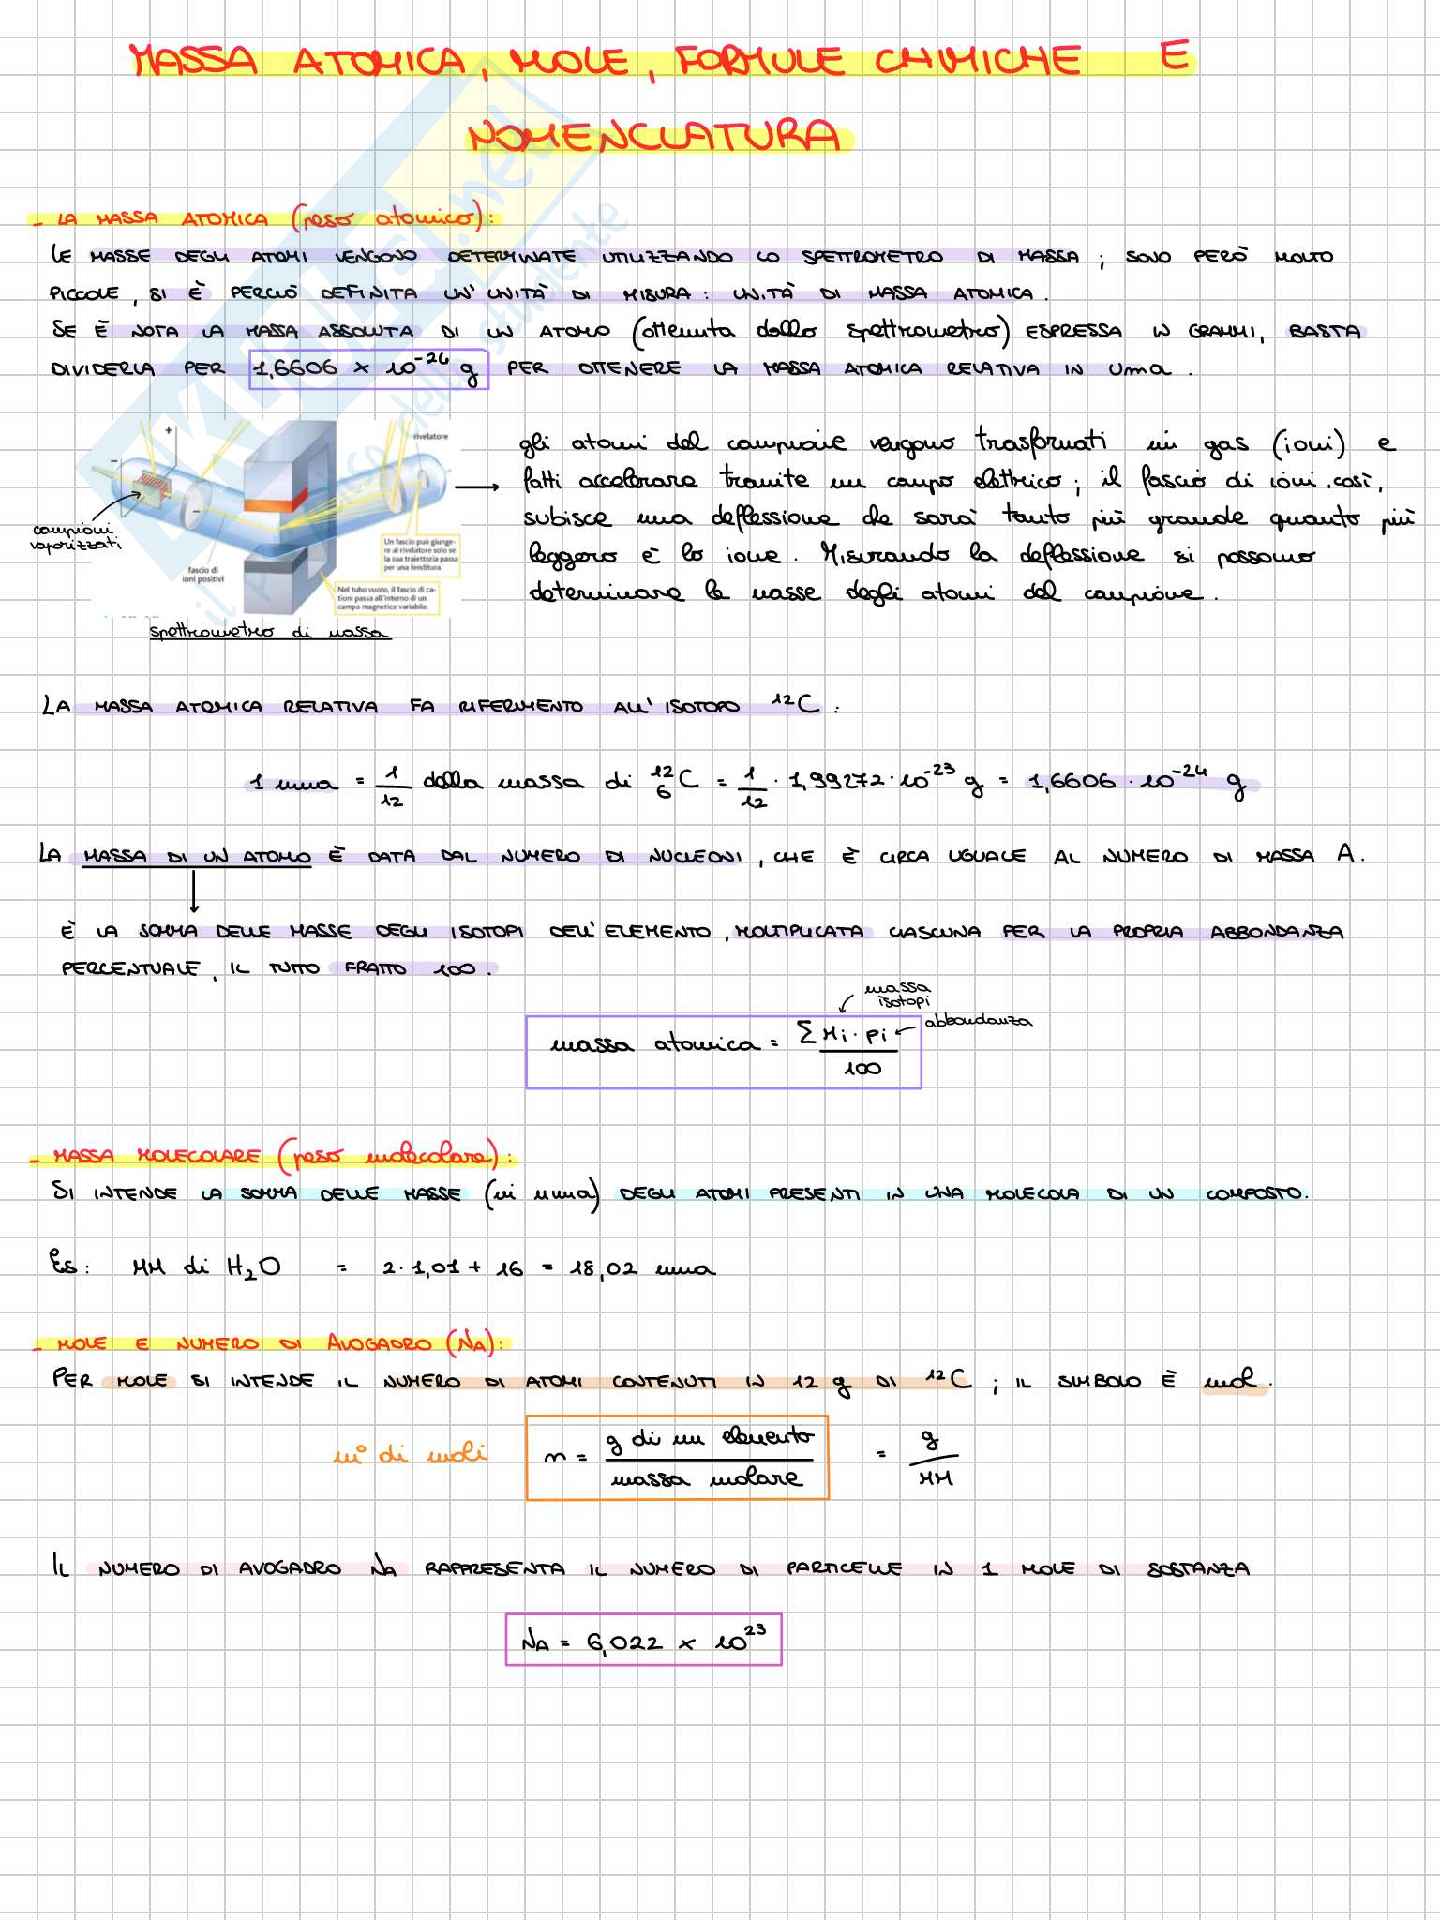 MASSA ATOMICA, MOLE, FORMULE CHIMICHE E
NOMENCLATURA
- LA MASSA ATOMICA (peso atomico):
LE MASSE DEGLI ATOMI VENGONO DETERMINATE UTILIZZANDO LO SPETTROMETRO DI MASSA; SONO PERÒ MOLTO
PICCOLE, SI È PERCIÒ DEFINITA UN'UNITÀ DI MISURA: UNITÀ DI MASSA ATOMICA.
SE È NOTA LA MASSA ASSOLUTA DI UN ATOMO (ottenuta dallo spettrometro) ESPRESSA IN GRAMMI, BASTA
DIVIDERLA PER 1,6606 × 10⁻²⁴ g PER OTTENERE LA MASSA ATOMICA RELATIVA IN uma.
rivelatore
campioni
vaporizzati
fascio di
ioni positivi
Un fascio può giunge-
re al rivelatore solo se
la sua traiettoria passa
per una fenditura.
Nel tubo vuoto, il fascio di ca-
tioni passa all'interno di un
campo magnetico variabile.
spettrometro di massa
gli atomi del campione vengono trasformati in gas (ioni) e
fatti accelerare tramite un campo elettrico; il fascio di ioni così,
subisce una deflessione che sarà tanto più grande quanto più
leggero è lo ione. Misurando la deflessione si possono
determinare le masse degli atomi del campione.
LA MASSA ATOMICA RELATIVA FA RIFERIMENTO ALL'ISOTOPO ¹²C:
1 uma = 1/12 della massa di ¹²₆C = 1/12 · 1,99272 · 10⁻²³ g = 1,6606 · 10⁻²⁴ g
LA MASSA DI UN ATOMO È DATA DAL NUMERO DI NUCLEONI, CHE È CIRCA UGUALE AL NUMERO DI MASSA A.
È LA SOMMA DELLE MASSE DEGLI ISOTOPI DELL'ELEMENTO, MOLTIPLICATA CIASCUNA PER LA PROPRIA ABBONDANZA
PERCENTUALE, IL TUTTO FRATTO 100.
massa
isotopi
abbondanza
massa atomica = Σ Mi · pi / 100
- MASSA MOLECOLARE (peso molecolare):
SI INTENDE LA SOMMA DELLE MASSE (in uma) DEGLI ATOMI PRESENTI IN UNA MOLECOLA DI UN COMPOSTO.
Es: MM di H₂O = 2·1,01 + 16 = 18,02 uma
- MOLE E NUMERO DI AVOGADRO (NA):
PER MOLE SI INTENDE IL NUMERO DI ATOMI CONTENUTI IN 12 g DI ¹²C; IL SIMBOLO È mol.
n° di moli n = g di un elemento / massa molare = g / MM
IL NUMERO DI AVOGADRO NA RAPPRESENTA IL NUMERO DI PARTICELLE IN 1 MOLE DI SOSTANZA
NA = 6,022 × 10²³